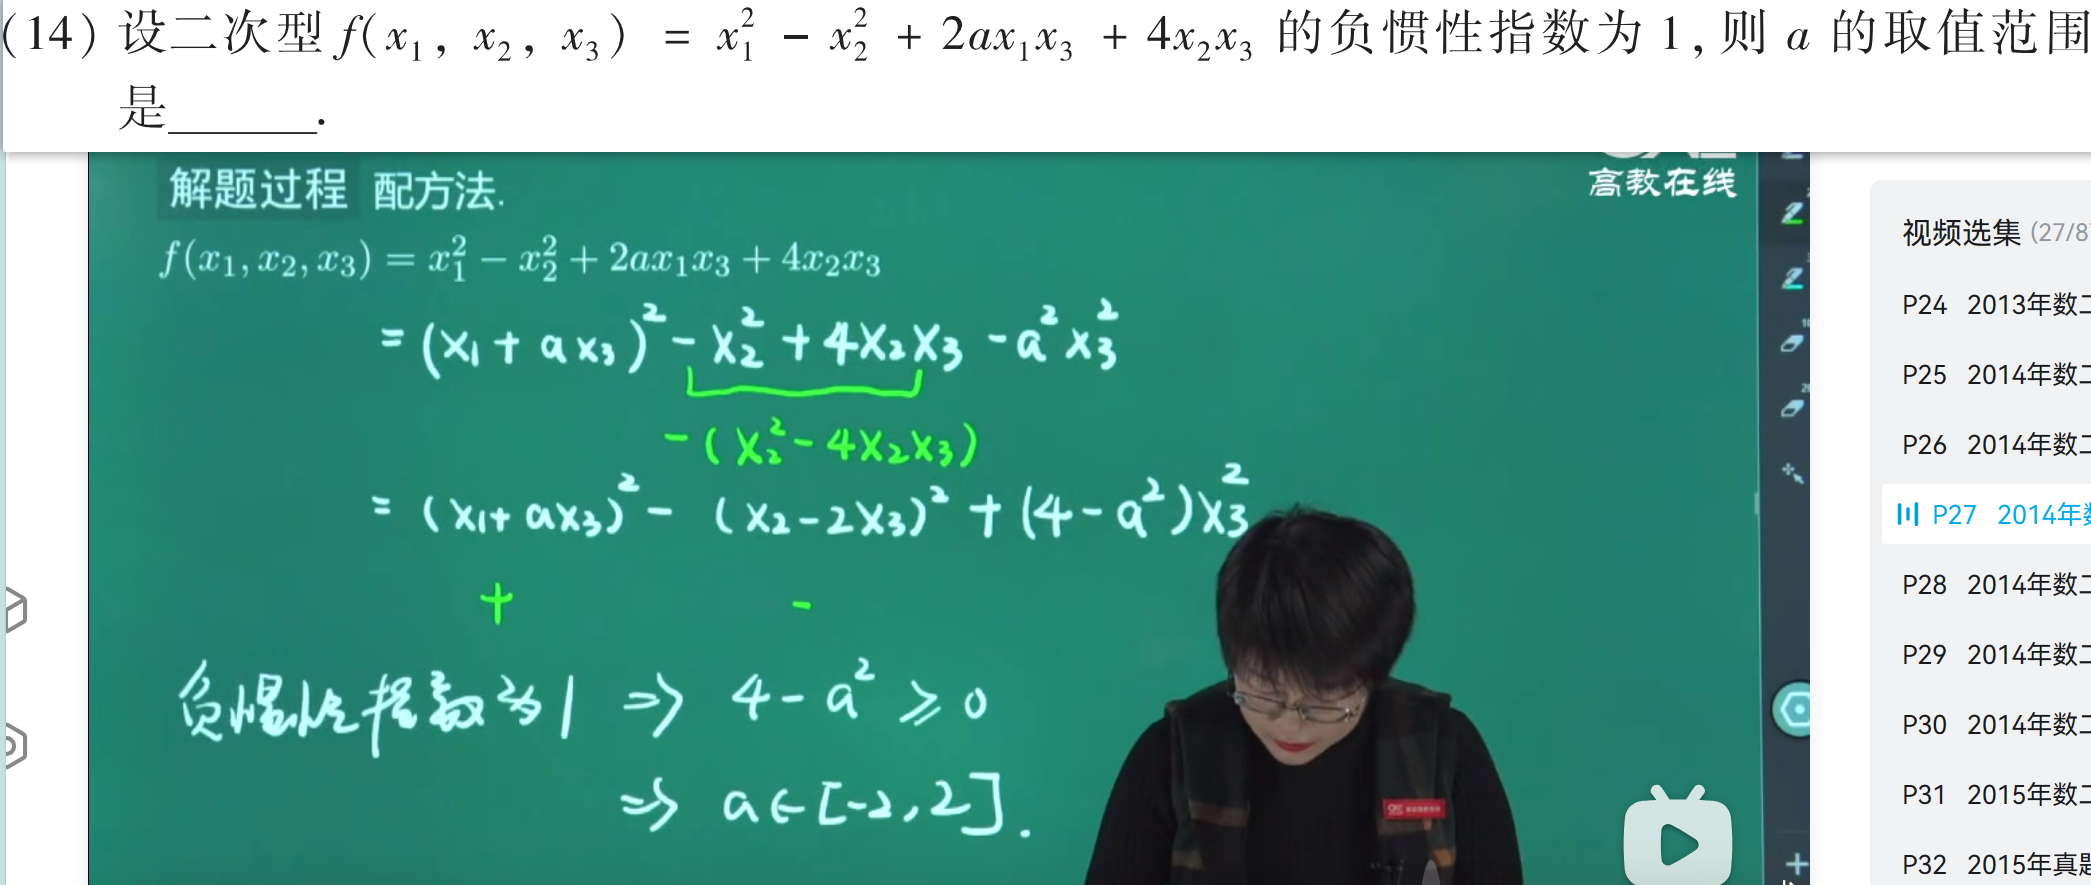 (14) 设二次型 f(x₁, x₂, x₃) = x₁² − x₂² + 2ax₁x₃ + 4x₂x₃ 的负惯性指数为 1, 则 a 的取值范围
是______.
高教在线
解题过程 配方法.
f(x₁, x₂, x₃) = x₁² − x₂² + 2ax₁x₃ + 4x₂x₃
= (x₁ + ax₃)² − x₂² + 4x₂x₃ − a²x₃²
−(x₂² − 4x₂x₃)
= (x₁ + ax₃)² − (x₂ − 2x₃)² + (4 − a²)x₃²
+ −
负惯性指数为1 ⇒ 4 − a² ⩾ 0
⇒ a ∈ [−2, 2].
视频选集 (27/8
P24 2013年数二
P25 2014年数二
P26 2014年数二
P27 2014年数
P28 2014年数二
P29 2014年数二
P30 2014年数二
P31 2015年数二
P32 2015年真题